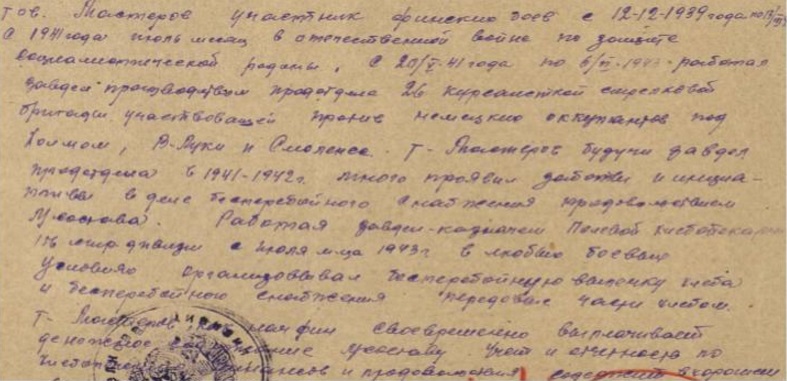 тов. Мастеров участник финских боев с 12-12-1939 года по 13/
С 1941 года июль месяц в отечественной войне по защите
социалистической родины, С 20/ -41 года по 6/ -1943- работал
завдел производством продотдела 26 курсантской стрелковой
бригады участвовавшей против немецких оккупантов под
Холмом, В-Луки и Смоленск. т- Мастеров будучи завдел
продотдела в 1941-1942г. много проявил заботы и инициа-
тивы в деле бесперебойного снабжения продовольствием
л/состава. Работая завдел-казначеем Полевой хлебопекарни
стр дивизии с июля м-ца 1943г в любых боевых
условиях организовывал бесперебойную выпечку хлеба
и бесперебойного снабжения передовые части хлебом.
т- Мастеров своевременно выплачивает
денежное л/составу. Учет и отчетность по
и продовольствия содержит в хорошем